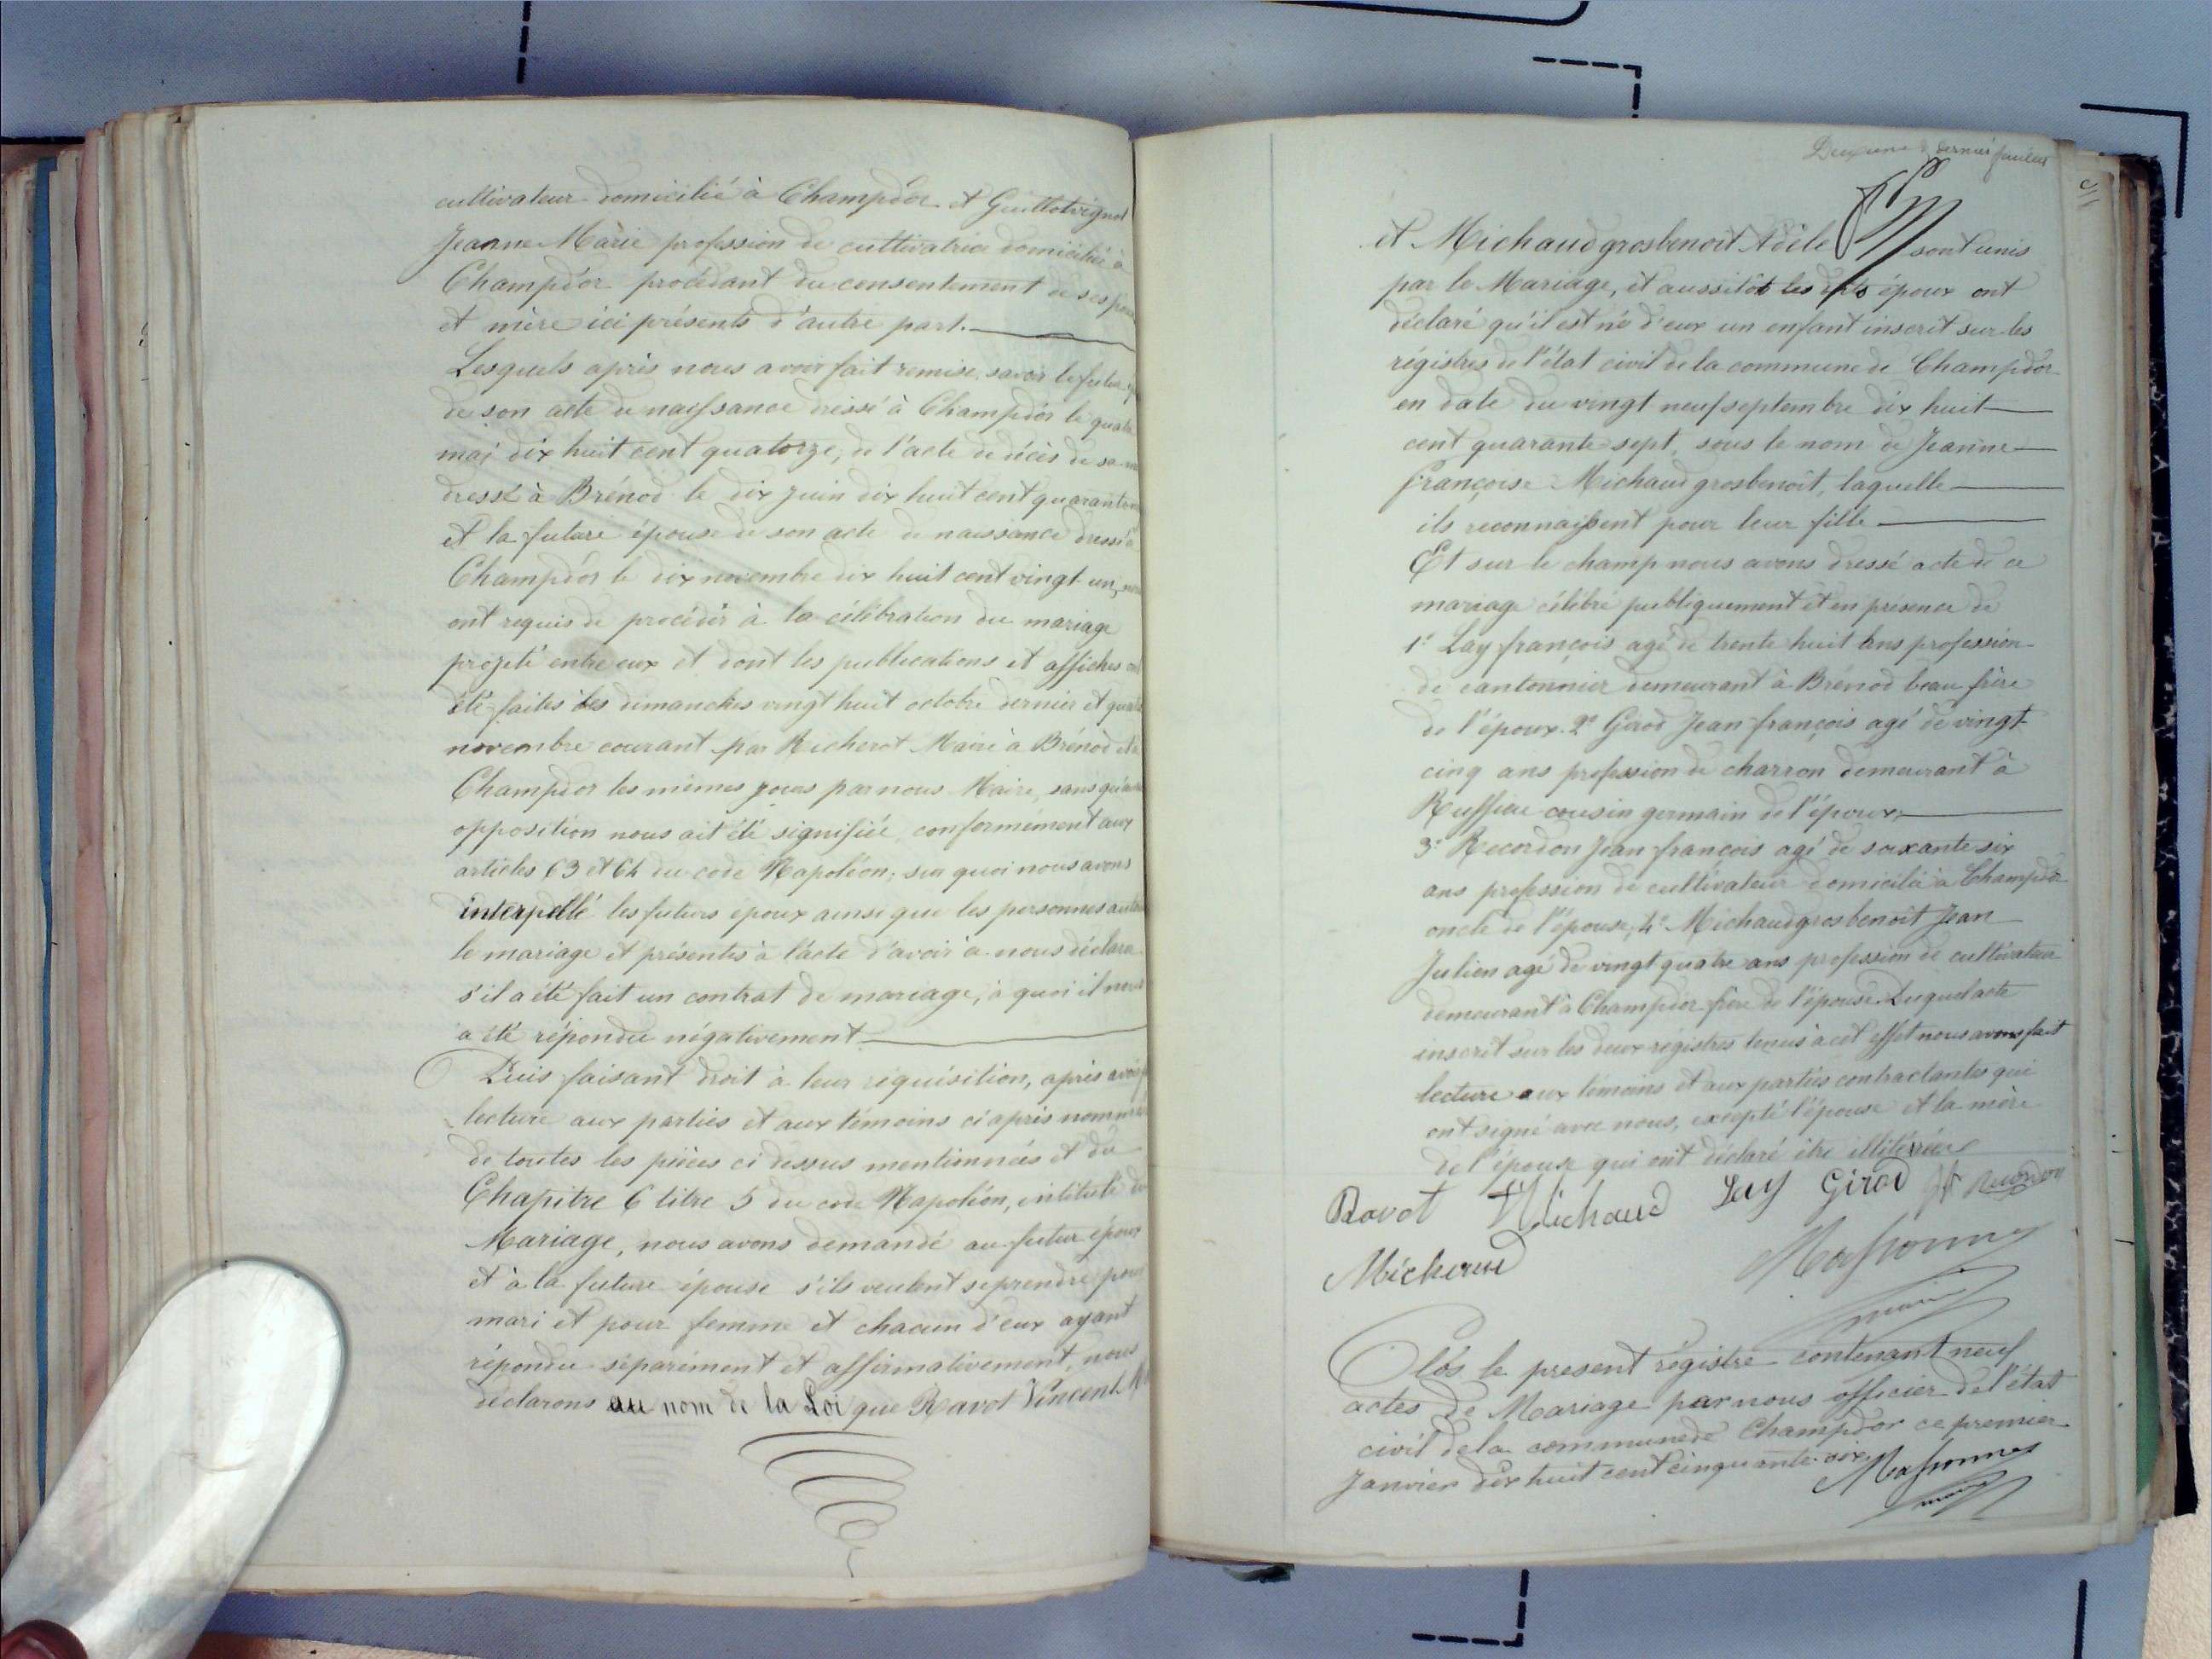 cultivateur domicilié à Champdor et Guillotvignot
Jeanne Marie profession de cultivatrice domiciliée à
Champdor procédant du consentement de ses
et mère ici présents d'autre part.
Lesquels après nous avoir fait remise, savoir le futur
de son acte de naissance dressé à Champdor le
mai dix huit cent quatorze, de l'acte de décès de sa
dressé à Brénod le dix juin dix huit cent
et la future épouse de son acte de naissance dressé à
Champdor le dix novembre dix huit cent vingt un,
ont requis de procéder à la célébration du mariage
projeté entre eux et dont les publications et affiches
été faites les dimanches vingt huit octobre dernier et
novembre courant par Richerot Maire à Brénod et
Champdor les mêmes jours par nous Maire, sans
opposition nous ait été signifiée, conformément aux
articles 63 et 64 du code Napoléon; sur quoi nous avons
interpellé les futurs époux ainsi que les personnes
le mariage et présentes à l'acte d'avoir à nous déclarer
s'il a été fait un contrat de mariage, à quoi il nous
a été répondu négativement
Puis faisant droit à leur réquisition, après avoir
lecture aux parties et aux témoins ci après nommés
de toutes les pièces ci dessus mentionnées et du
Chapitre 6 titre 5 du code Napoléon, intitulé du
Mariage, nous avons demandé au futur époux
et à la future épouse s'ils veulent se prendre pour
mari et pour femme et chacun d'eux ayant
répondu séparément et affirmativement, nous
déclarons au nom de la Loi que Ravot Vincent
Deuxième & dernier feuillet
et Michaudgrosbenoit Adèle sont unis
par le Mariage, et aussitôt les dits époux ont
déclaré qu'il est né d'eux un enfant inscrit sur les
régistres de l'état civil de la commune de Champdor
en date du vingt neuf septembre dix huit
cent quarante-sept, sous le nom de Jeanne
françoise Michaudgrosbenoit, laquelle
ils reconnaissent pour leur fille
Et sur le champ nous avons dressé acte de ce
mariage célébré publiquement et en présence de
1° Lay françois agé de trente huit ans profession
de cantonnier demeurant à Brénod beau frère
de l'époux. 2° Girod Jean françois agé de vingt
cinq ans profession de charron demeurant à
Ruffieu cousin germain de l'époux,
3° Recordon Jean françois agé de soixante six
ans profession de cultivateur domicilié à Champdor
oncle de l'épouse, 4° Michaudgrosbenoit Jean
Julien agé de vingt quatre ans profession de cultivateur
demeurant à Champdor frère de l'épouse. Duquel acte
inscrit sur les deux régistres tenus à cet effet nous avons fait
lecture aux témoins et aux parties contractantes qui
ont signé avec nous, excepté l'épouse et la mère
de l'épouse qui ont déclaré être illitérées
Ravot Michaud Lay Girod Jf Recordon
Michaud
maire
Clos le present régistre contenant neuf
actes de Mariage par nous officier de l'état
civil de la commune de Champdor ce premier
Janvier dix huit cent cinquante-six
maire